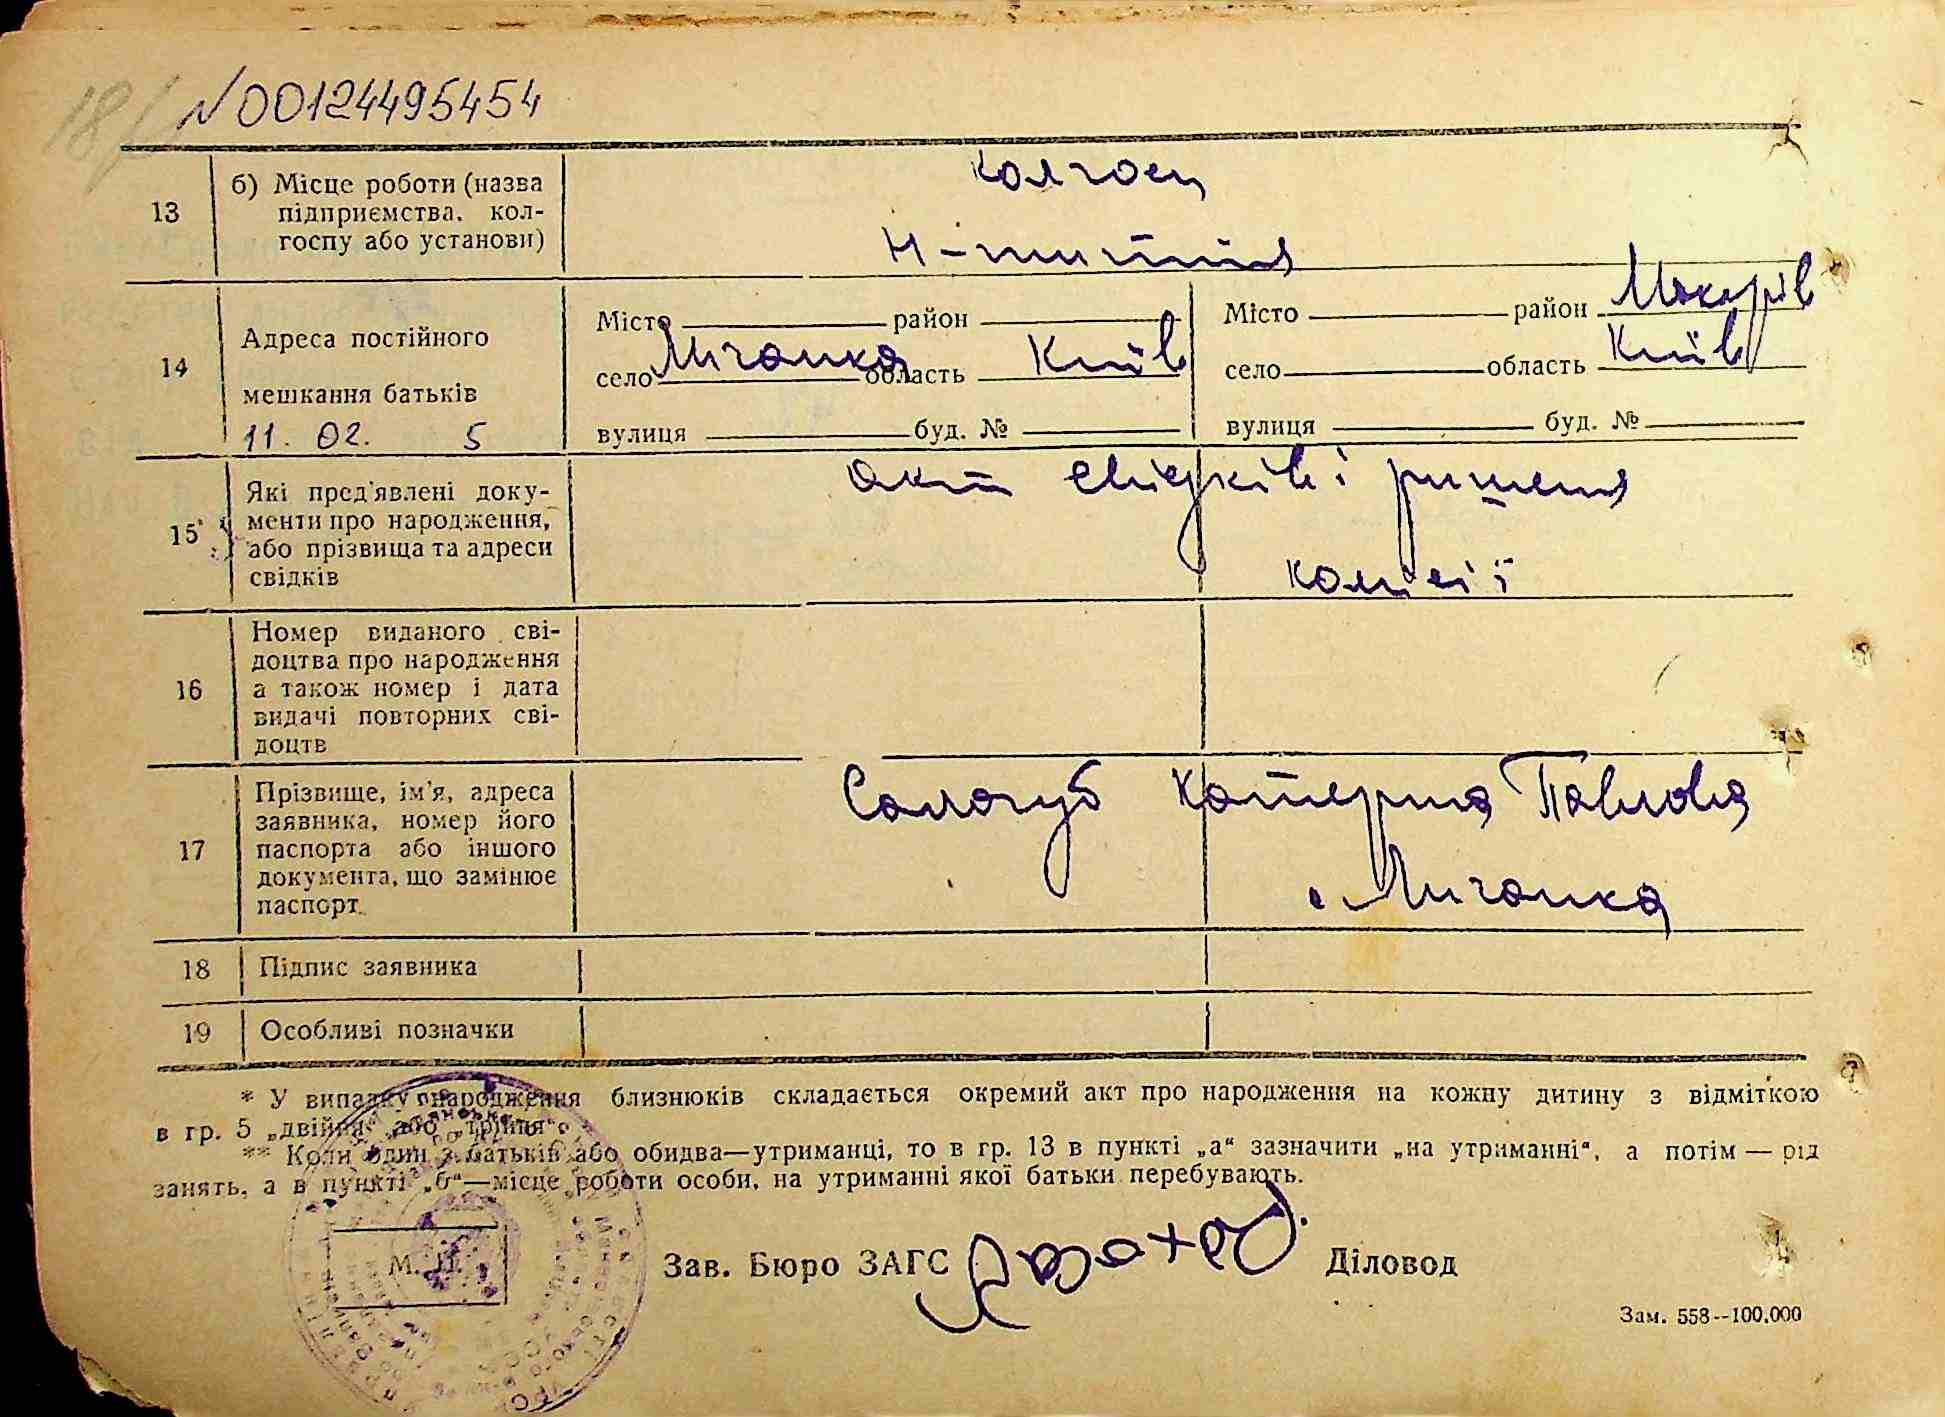 18/ №00124495454
13
б) Місце роботи (назва
підприємства, кол-
госпу або установи)
колгосп
14
Адреса постійного
мешкання батьків
11. 02. 5
Місто район
село Мигалка область Київ
вулиця буд. №
Місто район Макарів
село область Київ
вулиця буд. №
15
Які пред'явлені доку-
менти про народження,
або прізвища та адреси
свідків
акт свідків і рішення
комісії
16
Номер виданого сві-
доцтва про народження
а також номер і дата
видачі повторних сві-
доцтв
17
Прізвище, ім'я, адреса
заявника, номер його
паспорта або іншого
документа, що замінює
паспорт.
Сологуб Катерина Павловна
с Мигалка
18
Підпис заявника
19
Особливі позначки
* У випадку народження близнюків складається окремий акт про народження на кожну дитину з відміткою
в гр. 5 „двійня“ або „трійня“.
** Коли один з батьків або обидва—утриманці, то в гр. 13 в пункті „а“ зазначити „на утриманні“, а потім — рід
занять, а в пункті „б“—місце роботи особи, на утриманні якої батьки перебувають.
М. П.
Зав. Бюро ЗАГС
Діловод
Зам. 558--100.000